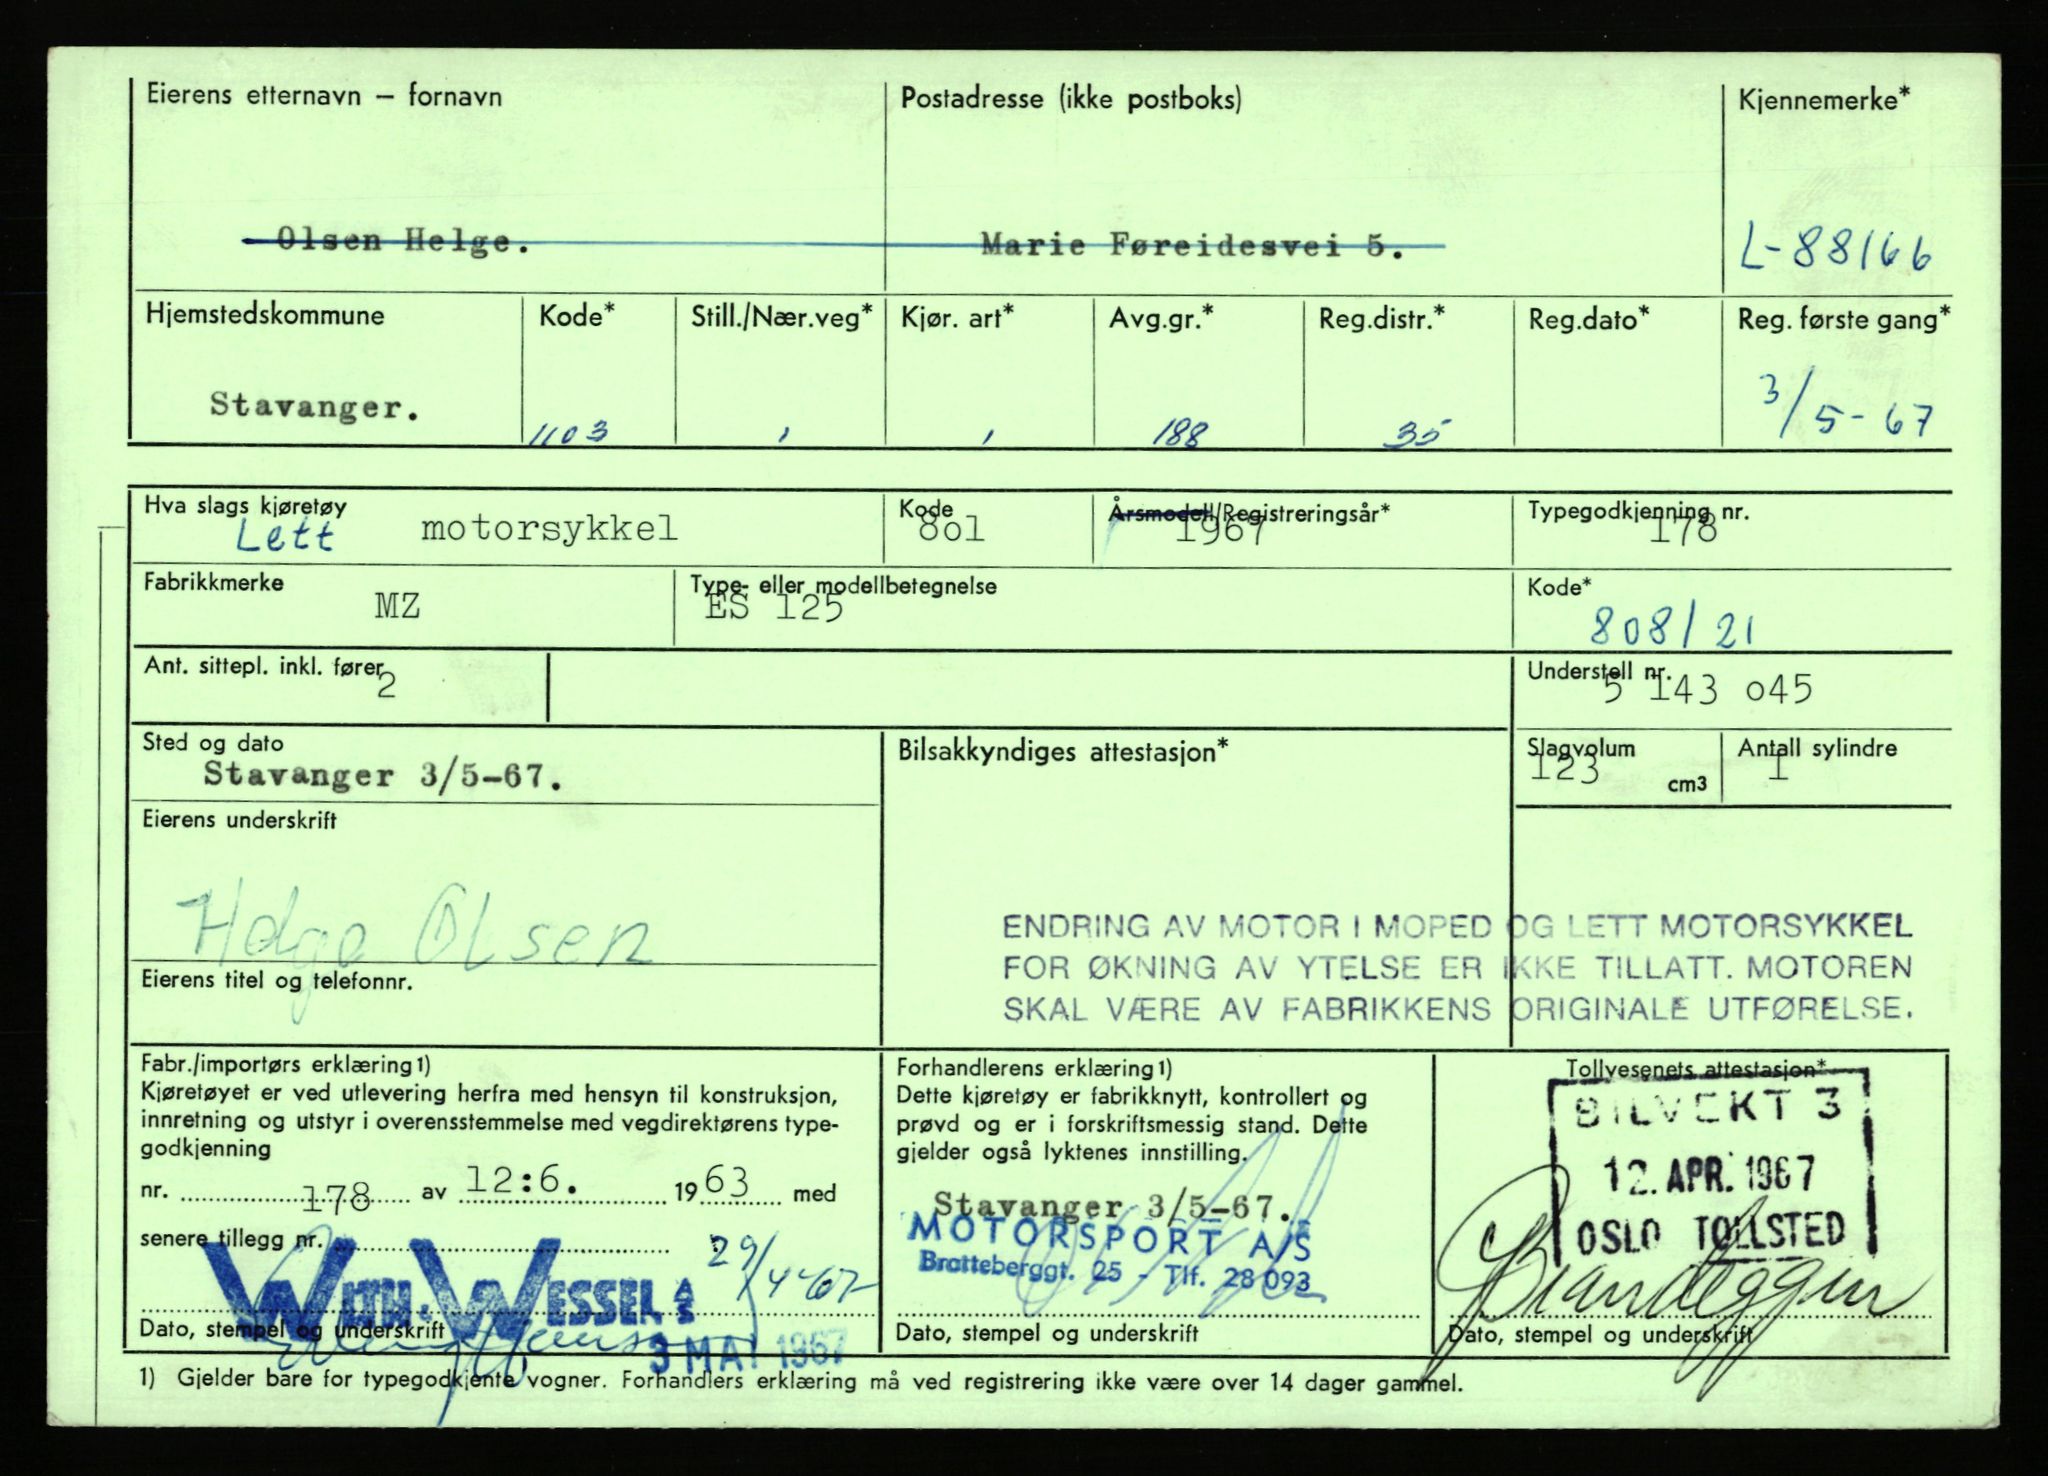 Eierens etternavn – fornavn
Postadresse (ikke postboks)
Kjennemerke*
Olsen Helge.
Marie Føreidesvei 5.
L-88166
Hjemstedskommune
Kode*
Still./Nær.veg*
Kjør. art*
Avg.gr.*
Reg.distr.*
Reg.dato*
Reg. første gang*
Stavanger.
1103
188
35
3/5-67
Hva slags kjøretøy
Lett motorsykkel
Kode
8o1
Årsmodell/Registreringsår*
1967
Typegodkjenning nr.
178
Fabrikkmerke
MZ
Type- eller modellbetegnelse
ES 125
Kode*
808/21
Ant. sittepl. inkl. fører
2
Understell nr.
5 143 o45
Sted og dato
Stavanger 3/5-67.
Bilsakkyndiges attestasjon*
Slagvolum
123 cm3
Antall sylindre
1
Eierens underskrift
Helge Olsen
ENDRING AV MOTOR I MOPED OG LETT MOTORSYKKEL
FOR ØKNING AV YTELSE ER IKKE TILLATT. MOTOREN
SKAL VÆRE AV FABRIKKENS ORIGINALE UTFØRELSE.
Eierens titel og telefonnr.
Fabr./importørs erklæring1)
Kjøretøyet er ved utlevering herfra med hensyn til konstruksjon,
innretning og utstyr i overensstemmelse med vegdirektørens type-
godkjenning
nr. 178 av 12:6. 1963 med
senere tillegg nr.
29/4-67
WITH & WESSEL A/S
Dato, stempel og underskrift
3 MAI 1967
Forhandlerens erklæring1)
Dette kjøretøy er fabrikknytt, kontrollert og
prøvd og er i forskriftsmessig stand. Dette
gjelder også lyktenes innstilling.
Stavanger 3/5-67.
MOTORSPORT A/S
Bratteberggt. 25 - Tlf. 28 093
Dato, stempel og underskrift
Tollvesenets attestasjon*
BILVEKT 3
12. APR. 1967
OSLO TOLLSTED
Dato, stempel og underskrift
1) Gjelder bare for typegodkjente vogner. Forhandlers erklæring må ved registrering ikke være over 14 dager gammel.